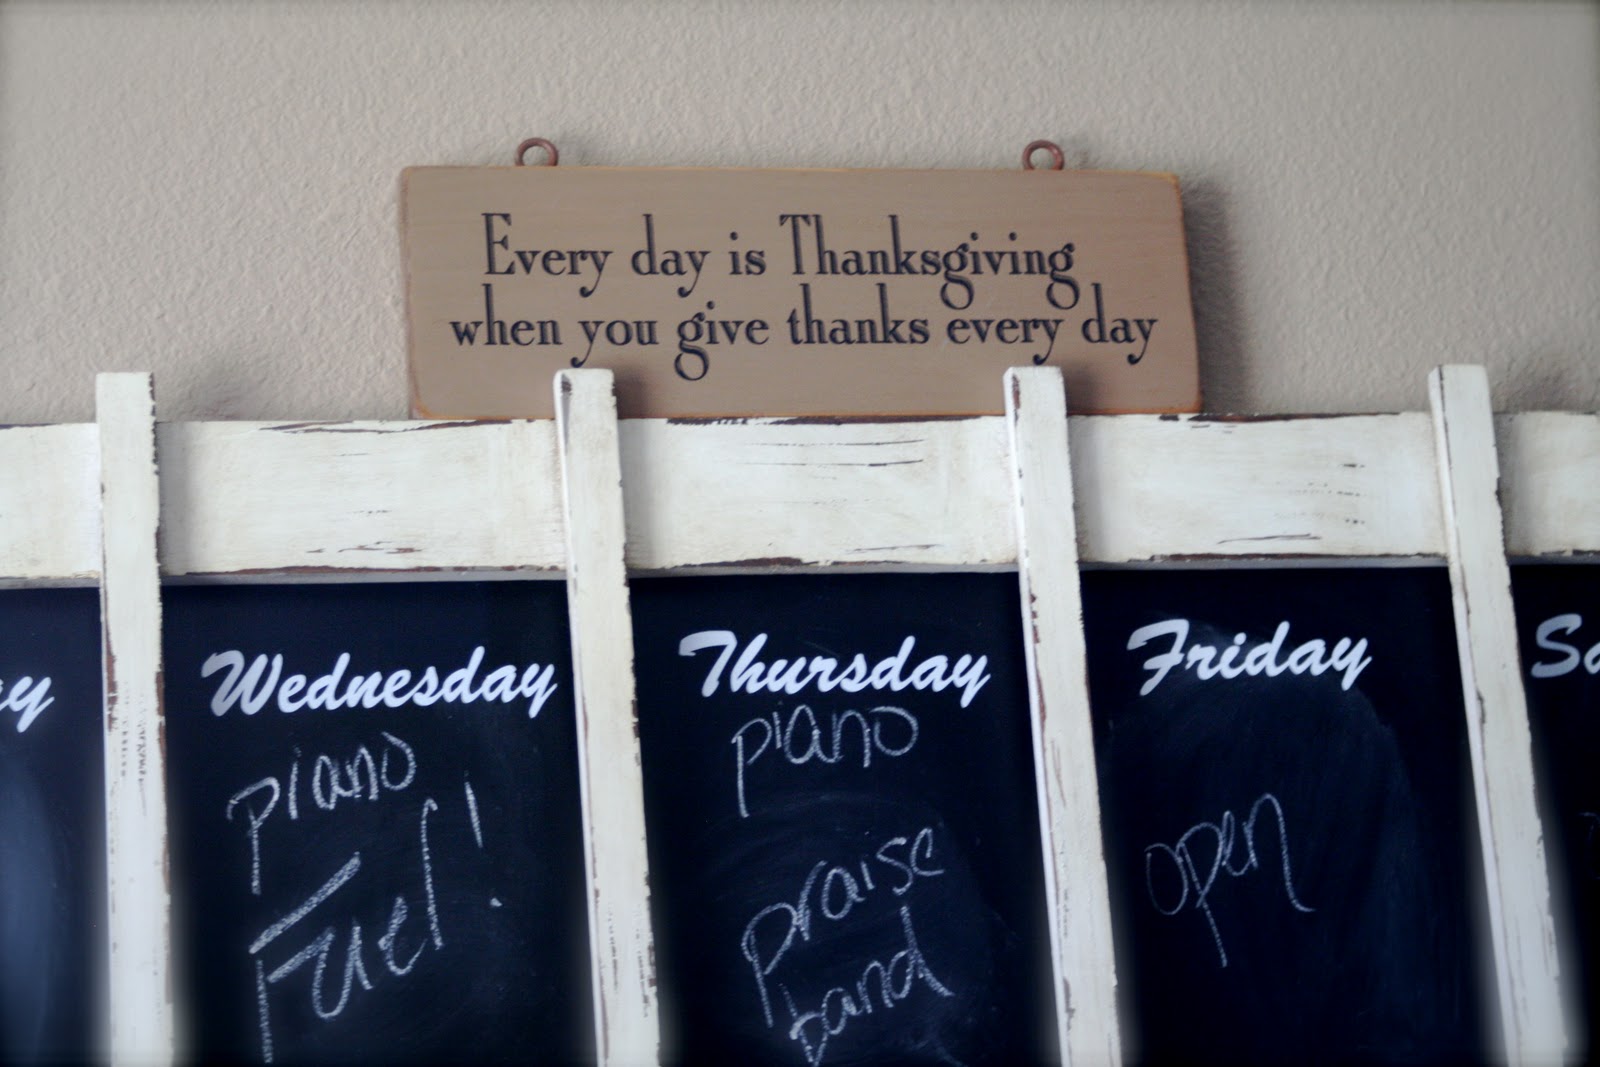 Every day is Thanksgiving
when you give thanks every day
Wednesday
piano
Fuel!
Thursday
piano
praise
band
Friday
open